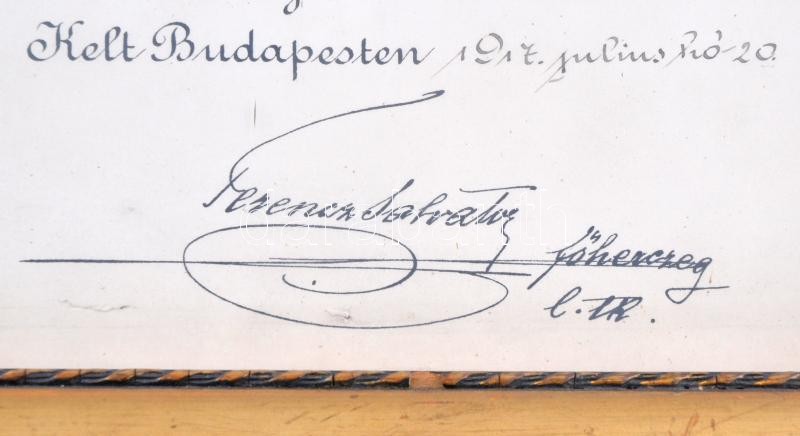 Kelt Budapesten 1917. julius hó 20.
Ferencz Salvator
főherczeg
l. tk.